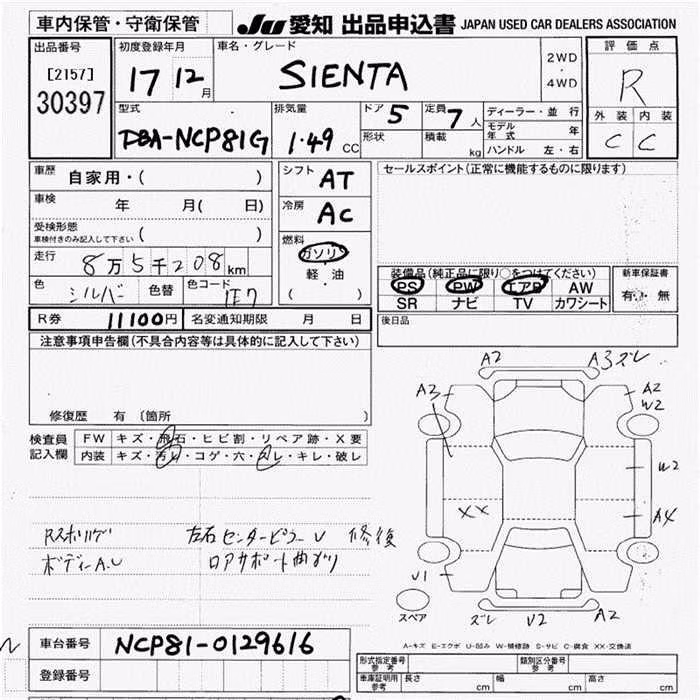 車内保管・守衛保管 JU 愛知 出品申込書 JAPAN USED CAR DEALERS ASSOCIATION
出品番号 初度登録年月 車名・グレード 評価点
[2157] 17 12月 SIENTA 2WD・4WD R
30397 型式 排気量 ドア 5 定員 7人 ディーラー・並行 外装 内装
DBA-NCP81G 1.49 CC 形状 積載 kg モデル年式 年 C C
ハンドル 左・右
車歴 自家用・( ) シフト AT セールスポイント(正常に機能するものに限ります)
車検 年 月( 日) 冷房 AC
受検形態
車検付きのみ記入して下さい ( ) 燃料
走行 8万5千208km ガソリン 装備品(純正品に限り○をつけてください) 新車保証書
色 シルバー 色替 色コード 1E7 軽油 PS PW エアB AW 有・無
( ) SR ナビ TV カワシート
R券 11100円 名変通知期限 月 日 後日品
注意事項申告欄(不具合内容等は具体的に記入して下さい)
A2 A3 ズレ
A2 A2
W2
修復歴 有 〔箇所 〕
検査員 FW キズ・飛石・ヒビ割・リペア跡・X要
記入欄 内装 キズ・汚れ・コゲ・穴・スレ・キレ・破レ
W2
XX A4
左右センターピラーU 修復
ボディーA.U ロアサポート曲がり
U1
スペア ズレ U2 A2
車台番号 NCP81-0129616
A-キズ E-エクボ U-凹み W-補修跡 S-サビ C-腐食 XX-交換済
登録番号 形式指定番号 参考 類別区分番号 参考
車庫証明用 参考 長さ cm 幅 cm 高さ cm